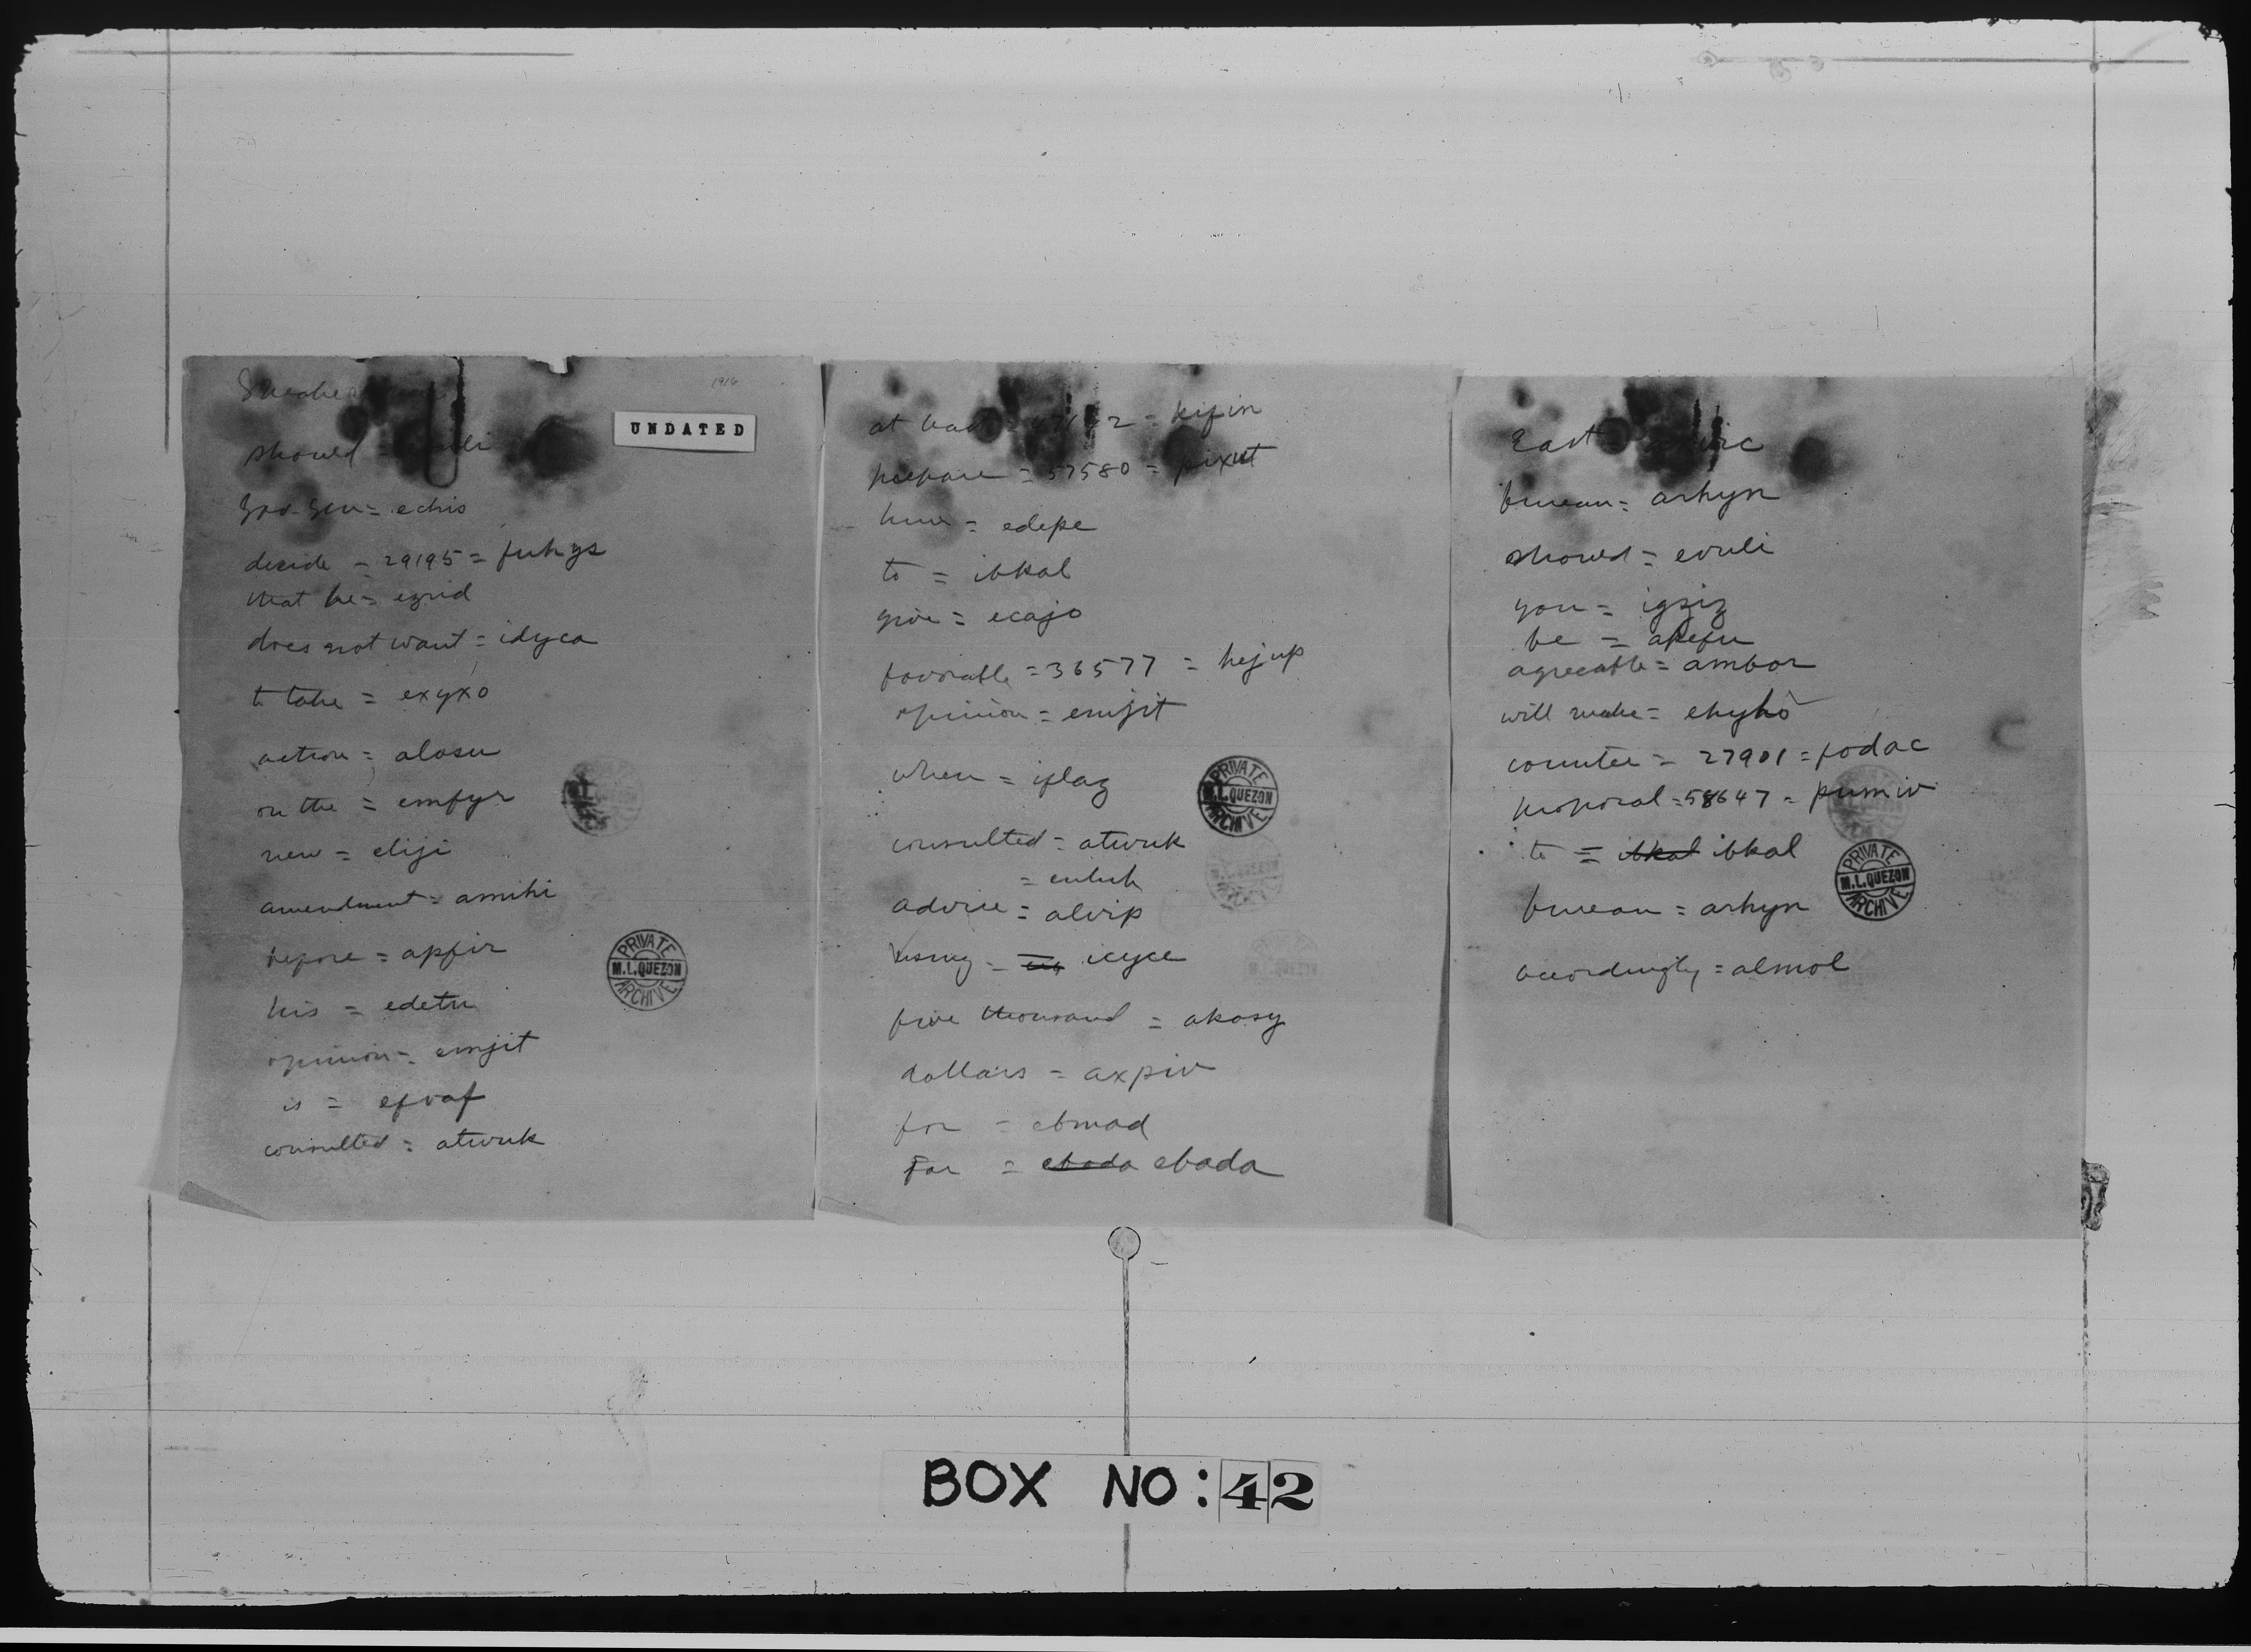 1916
UNDATED
should = uli
Gov. Gen = echis
decide = 29195 = fuhys
that he = ezrid
does not want = idyca
to take = exyxo
action = alosu
on the = emfyr
new = eliji
amendment = amihi
before = apfir
his = edetu
opinion = emjit
is = efvaf
consulted = atwuk
PRIVATE
M.L.QUEZON
ARCHIVE
at least = 2 = kifin
prepare = 57580 = pixut
him = edepe
to = ibkal
give = ecajo
favorable = 36577 = hejup
opinion = emjit
when = iflaz
consulted = atwuk
advise = alvip
using = icyce
five thousand = akosy
dollars = axpiv
for = ebmad
Far = ebada ebada
PRIVATE
M.L.QUEZON
ARCHIVE
East
bureau = arhyn
should = evuli
you = igziz
be = apefu
agreeable = ambor
will make = ehyho
counter = 27901 = fodac
proposal = 58647 = pumiv
to = ibkal ibkal
bureau = arhyn
accordingly = almol
PRIVATE
M.L.QUEZON
ARCHIVE
BOX NO: 42